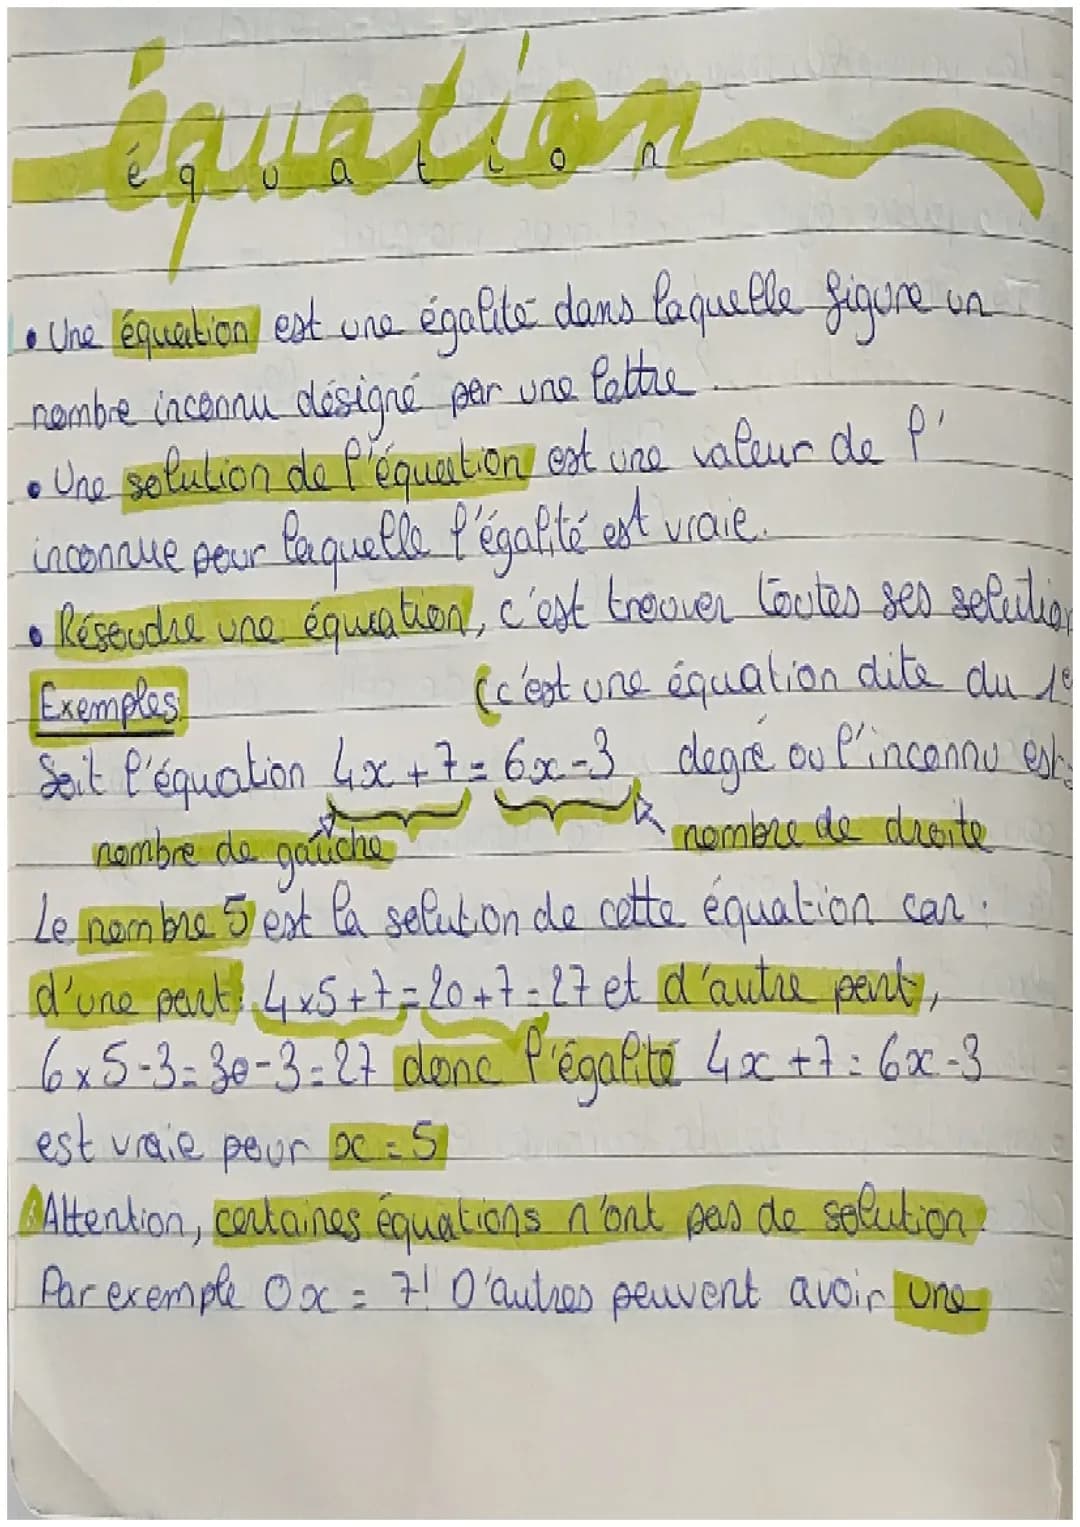 équation
é q u a t i o n
• Une équation est une égalité dans laquelle figure un
nombre inconnu désigné par une lettre.
• Une solution de l'équation est une valeur de l'
inconnue pour laquelle l'égalité est vraie.
• Résoudre une équation, c'est trouver toutes ses solution
Exemples: (c'est une équation dite du 1e
Soit l'équation 4x + 7 = 6x - 3 degré ou l'inconnu est
nombre de gauche nombre de droite
Le nombre 5 est la solution de cette équation car :
d'une part: 4x5+7=20+7=27 et d'autre part,
6x5-3=30-3=27 donc l'égalité 4x +7 = 6x -3
est vraie pour x = 5
Attention, certaines équations n'ont pas de solution.
Par exemple 0x = 7! D'autres peuvent avoir une